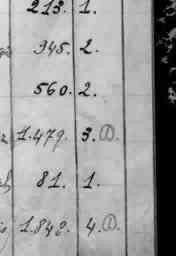 213. 1.
345. 2.
560. 2.
1.479. 3. ①.
81. 1.
1.842. 4. ①.